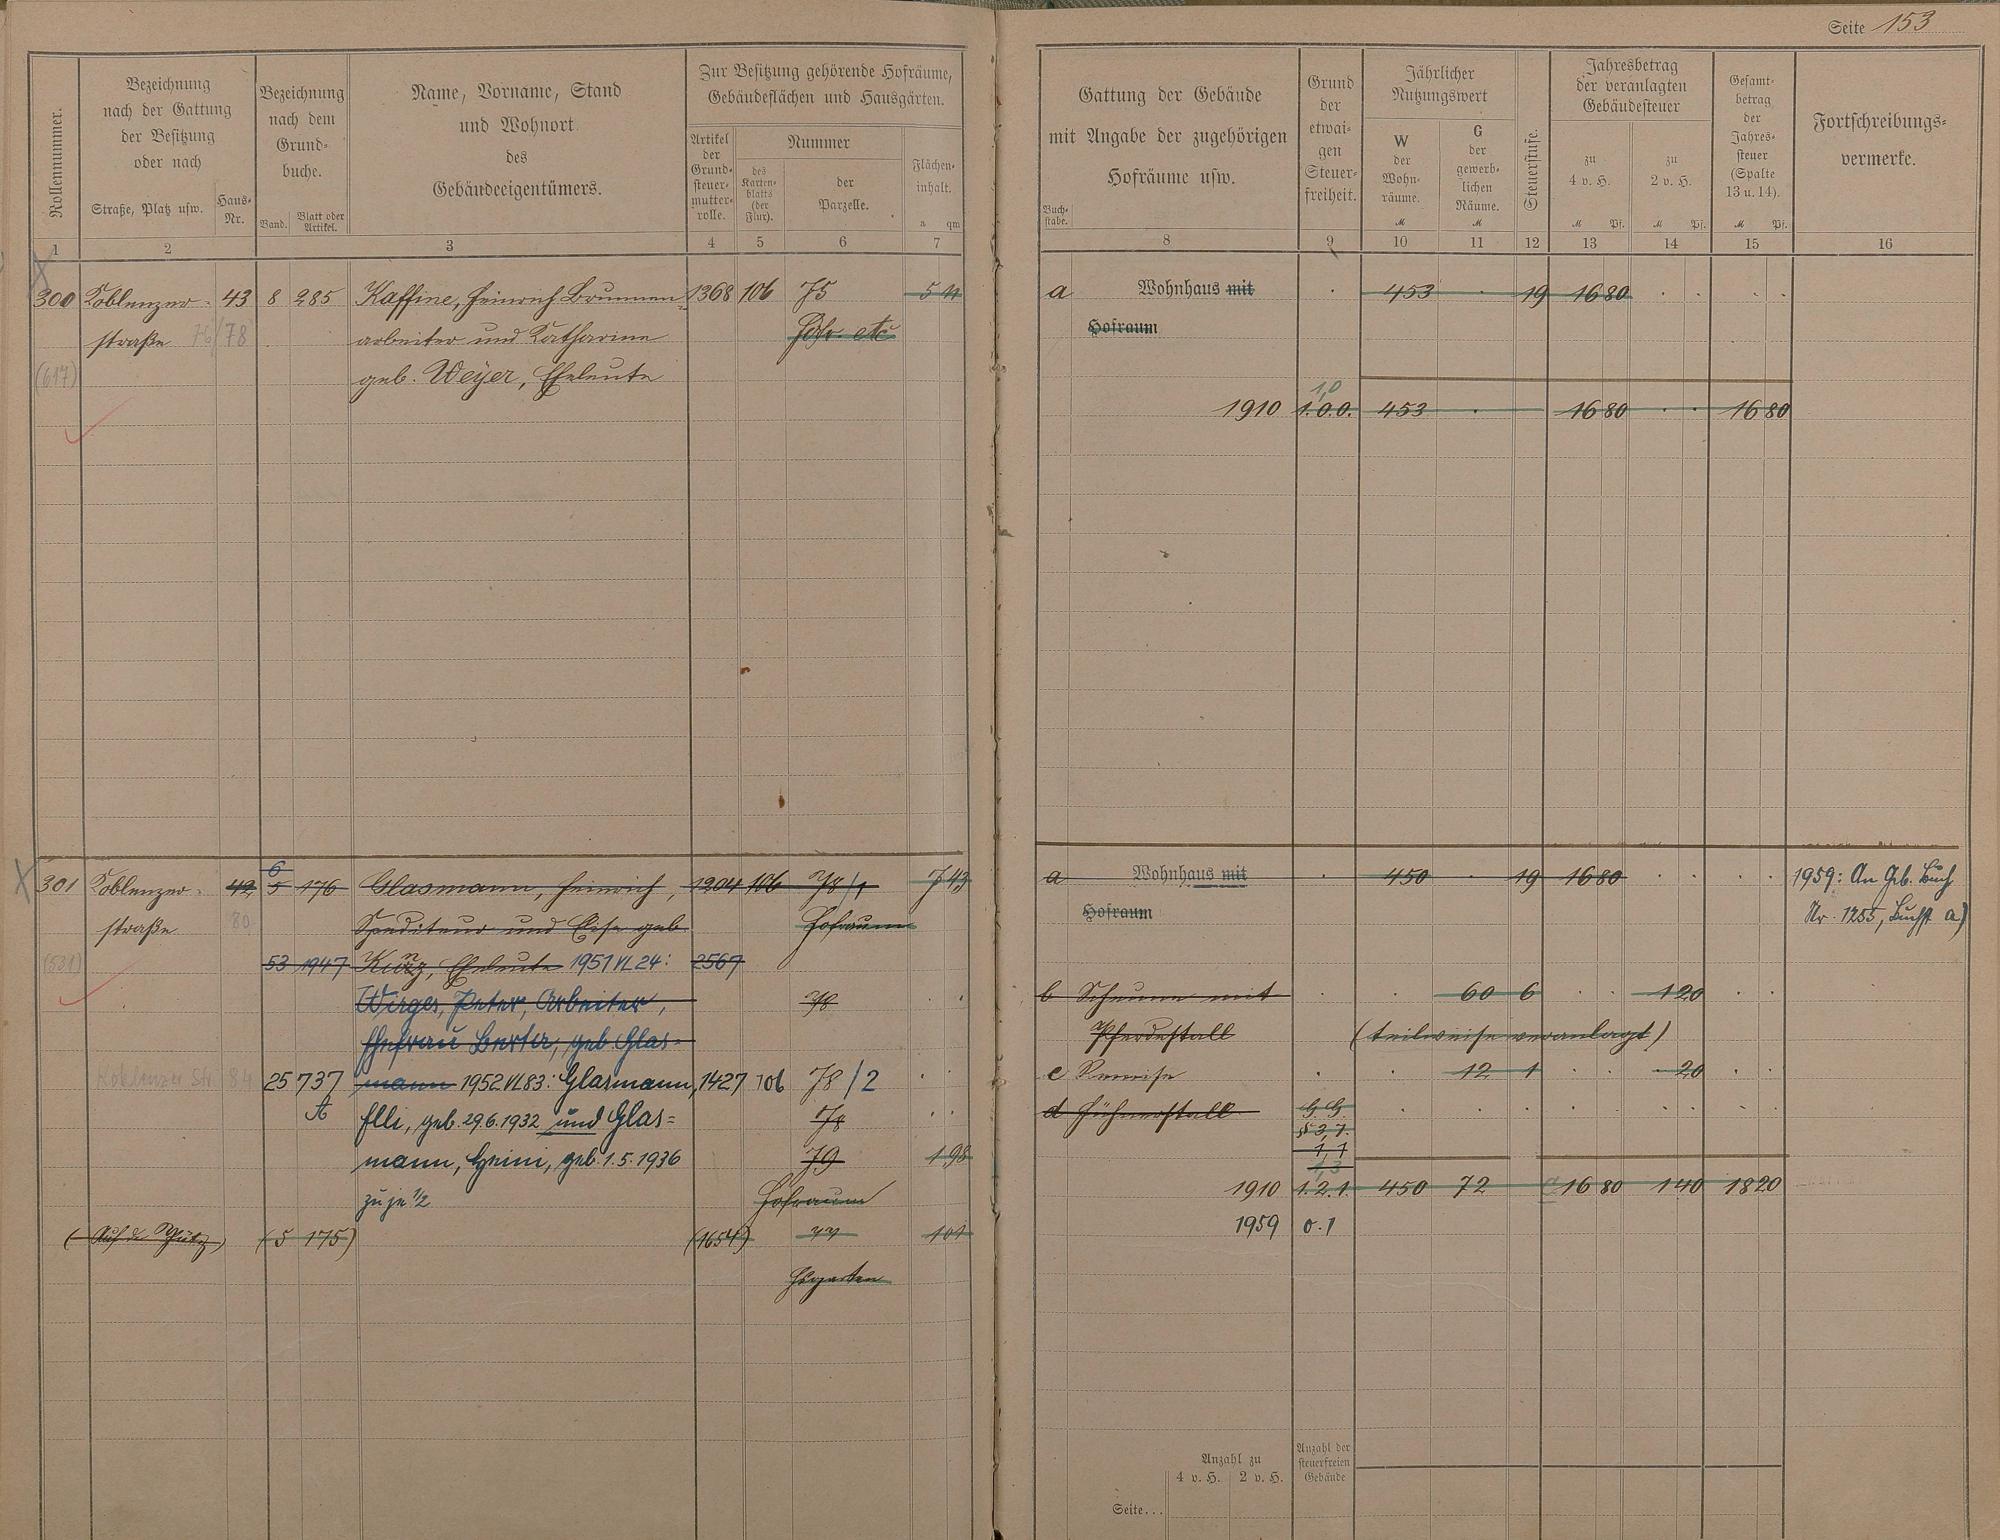 Seite 153
Rollennummer.
Bezeichnung
nach der Gattung
der Besitzung
oder nach
Straße, Platz usw.
Haus-
Nr.
Bezeichnung
nach dem
Grund-
buche.
Band.
Blatt oder
Artikel.
Name, Vorname, Stand
und Wohnort
des
Gebäudeeigentümers.
Zur Besitzung gehörende Hofräume,
Gebäudeflächen und Hausgärten.
Artikel
der
Grund-
steuer-
mutter-
rolle.
Nummer
des
Karten-
blatts
(der
Flur).
der
Parzelle.
Flächen-
inhalt.
a qm
Gattung der Gebäude
mit Angabe der zugehörigen
Hofräume usw.
Buch-
stabe.
Grund
der
etwai-
gen
Steuer-
freiheit.
Jährlicher
Nutzungswert
W
der
Wohn-
räume.
M
G
der
gewerb-
lichen
Räume.
M
Steuerstufe.
Jahresbetrag
der veranlagten
Gebäudesteuer
zu
4 v. H.
M Pf.
zu
2 v. H.
M Pf.
Gesamt-
betrag
der
Jahres-
steuer
(Spalte
13 u. 14).
M Pf.
Fortschreibungs-
vermerke.
1 2 3 4 5 6 7 8 9 10 11 12 13 14 15 16
300 Koblenzer- 43 8 285 Kaffine, Heinrich Brunnen- 1368 106 75 5 11 a Wohnhaus mit 453 19 16 80
straße 76/78 arbeiter und Katharina Hofr. etc Hofraum
(617) geb. Weyer, Eheleute
1,0
1910 1.0.0. 453 16 80 16 80
6
301 Koblenzer- 42 5 176 Glasmann, Heinrich, 1204 106 78/1 7 43 a Wohnhaus mit 450 19 16 80 1959: An Geb. Buch
straße 80 Spediteur und Elise geb. Hofraum Hofraum Nr. 1255, Buchst a)
(531) 53 1947 Kunz, Eheleute 1951 VI 24: 2567
Wirges, Peter, Arbeiter, 78 b Scheune mit 60 6 1 20
Ehefrau Berta, geb. Glas- Pferdestall (teilweise veranlagt)
Koblenzer Str 84 25 737 mann 1952 VI 83: Glasmann, 1427 106 78/2 c Remise 12 1 20
A Elli, geb. 29.6.1932 und Glas- 78 d Hühnerstall G. G.
§ 3,7.
mann, Heini, geb. 1.5.1936 79 1 98
1,3
zu je 1/2 Hofraum 1910 1.2.1. 450 72 16 80 1 40 18 20
(Auf der) (5 175) (1654) 77 1 01 1959 0.1
Hsgarten
Anzahl zu
4 v. H. 2 v. H.
Anzahl der
steuerfreien
Gebäude
Seite...